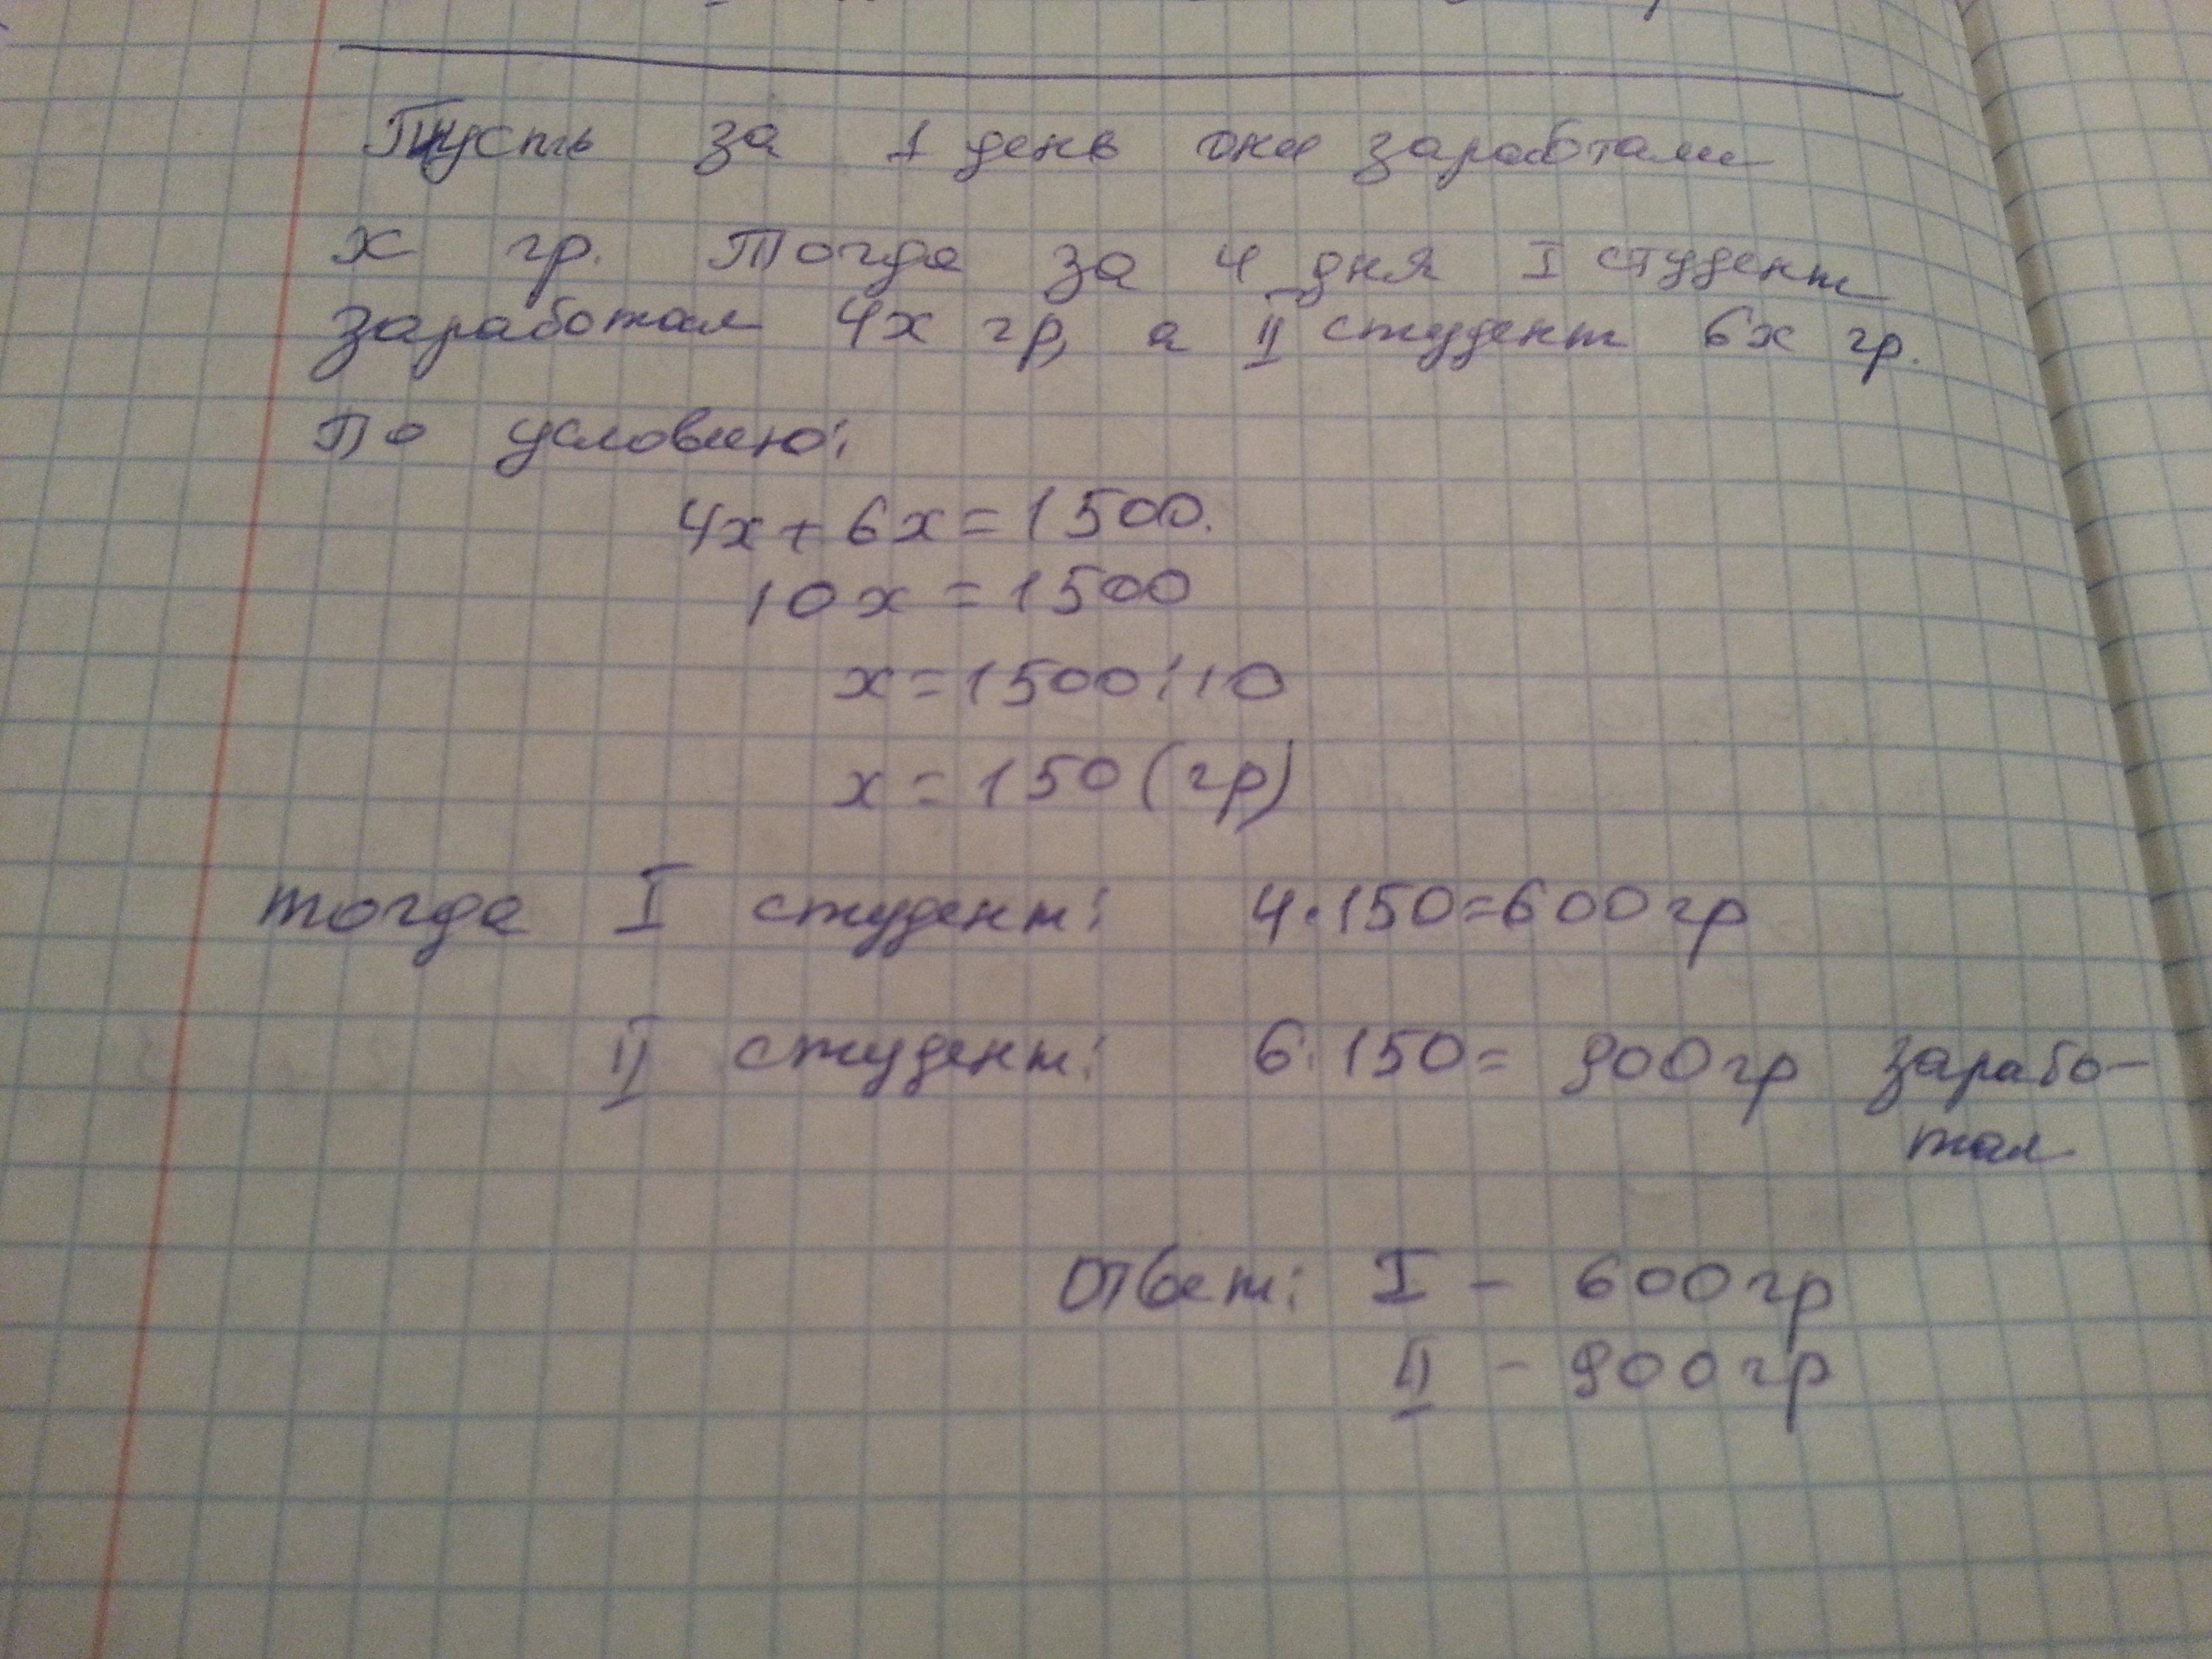 Пусть за 1 день они заработали
х гр. Тогда за 4 дня I студент
заработал 4х гр, а II студент 6х гр.
По условию:
4х + 6х = 1500.
10х = 1500
х = 1500 : 10
х = 150 (гр)
тогда I студент: 4 · 150 = 600 гр
II студент: 6 · 150 = 900 гр зарабо-
тал
Ответ: I - 600 гр
II - 900 гр